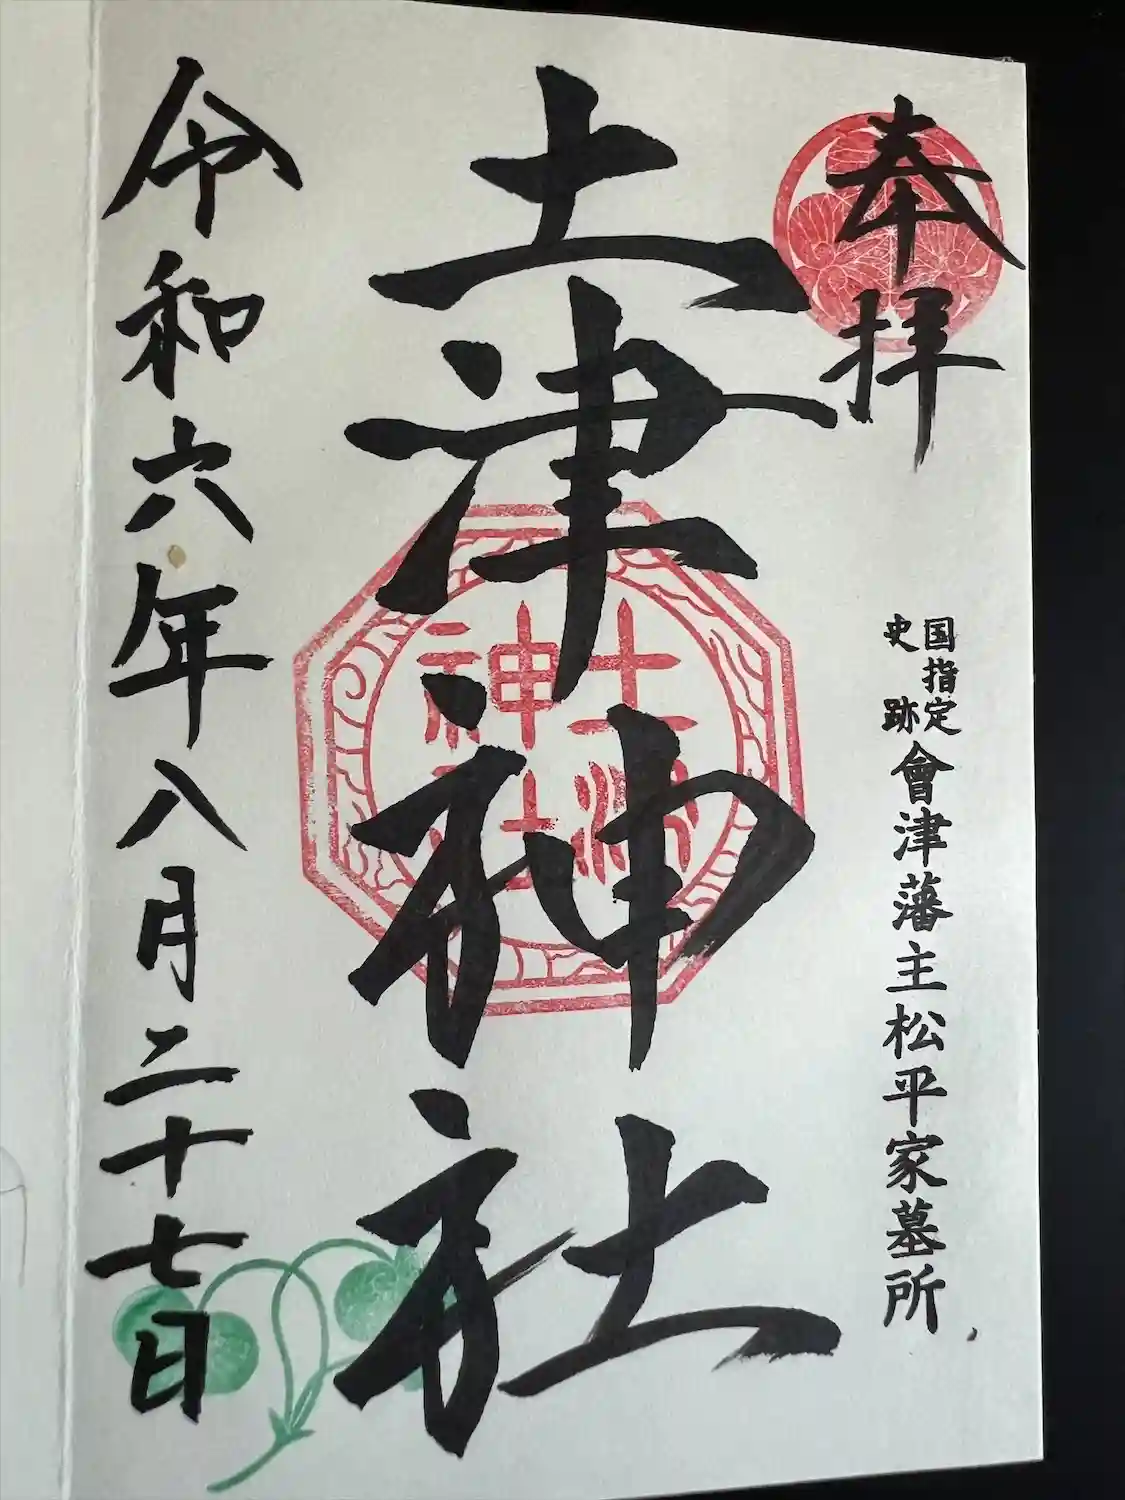 奉拝
国指定
史跡
會津藩主松平家墓所
土津神社
土津
神社
令和六年八月二十七日